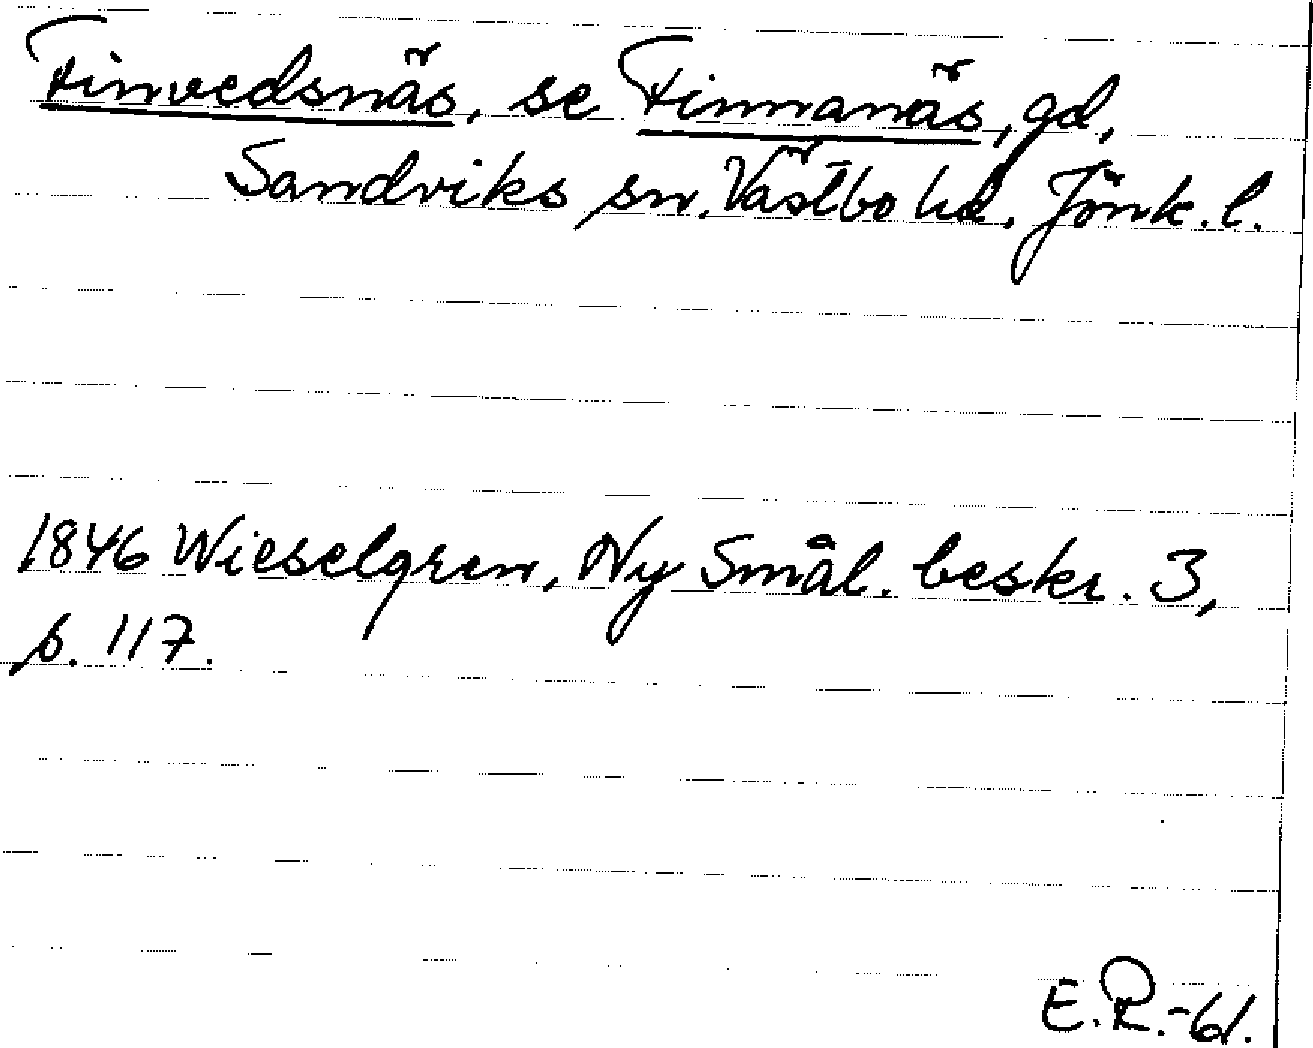 Finvedsnäs, se Finnanäs, gd,
Sandviks sn. Västbo hd, Jönk. l.
1846 Wieselgren, Ny Smål. beskr. 3,
s. 117.
E.R.-61.